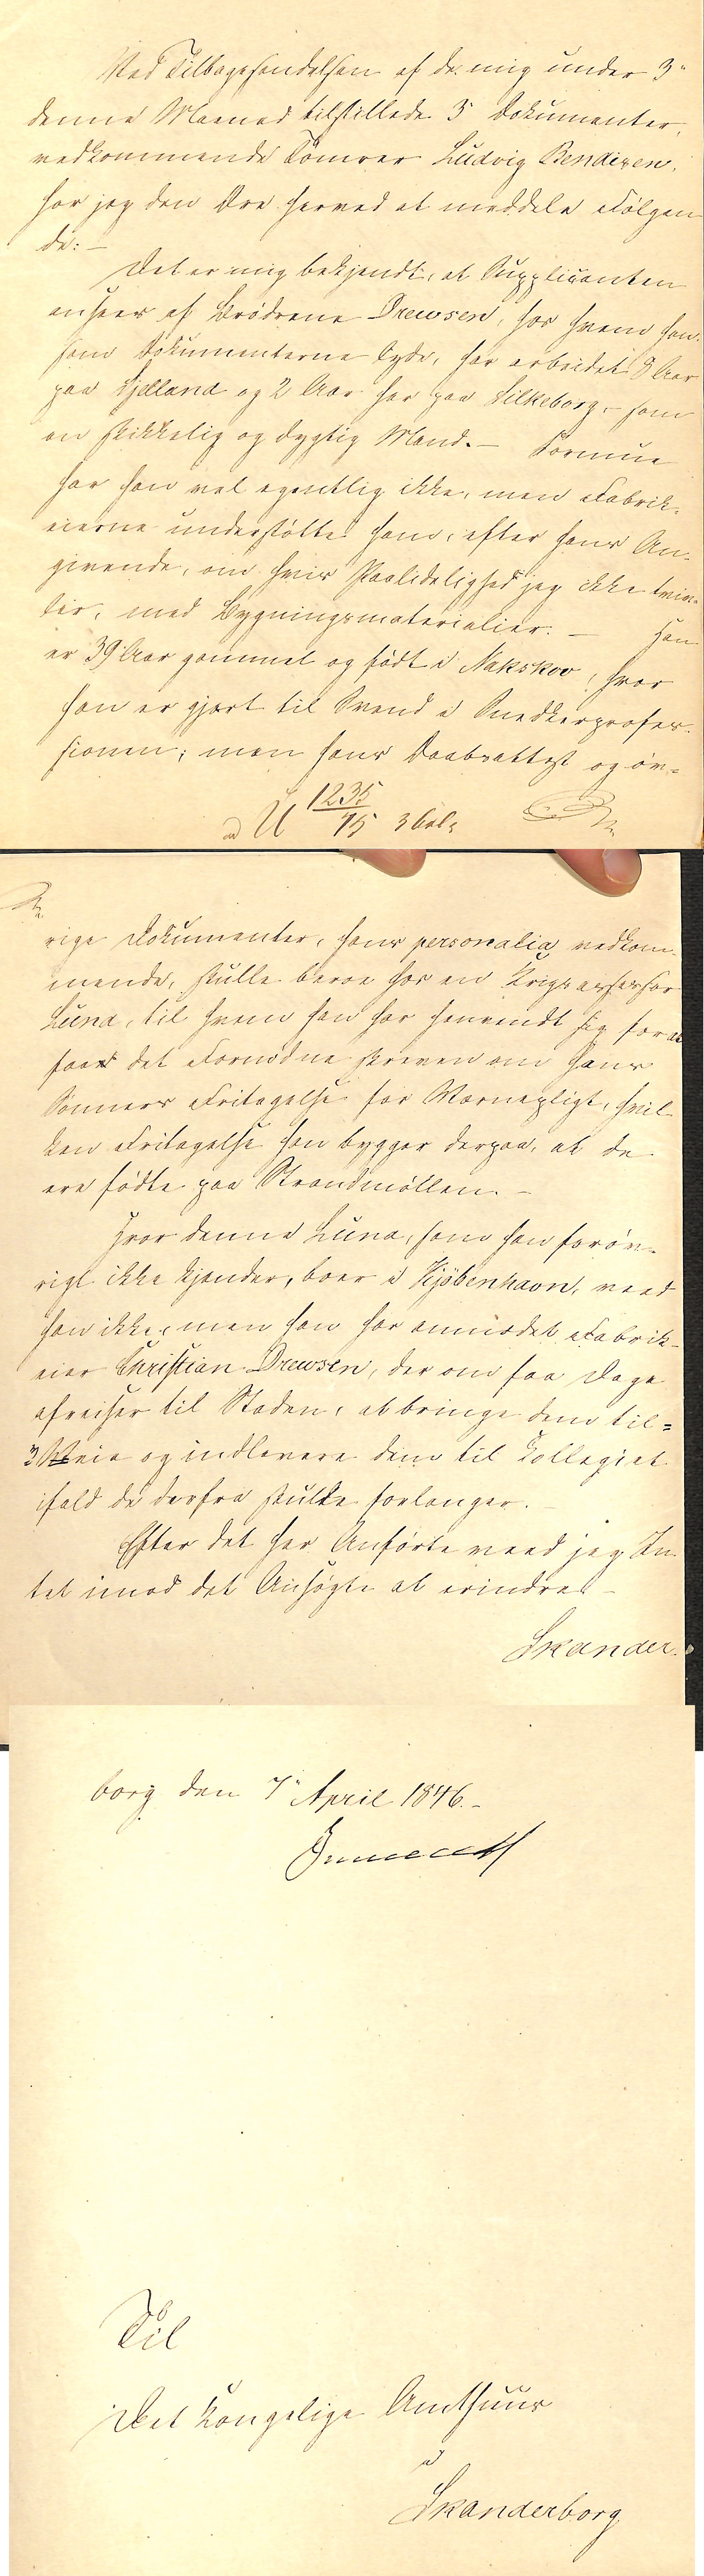 Ved Tilbagesendelsen af de mig under 3"
denne Maaned tilstillede 5 Dokumenter,
vedkommende Tömrer Ludvig Bendixen,
har jeg den Ære herved at meddele Følgen
de: –
Det er mig bekjendt, at Supplicanten
ansees af Brödrene Drewsen, hos hvem han
som Dokumenterne lyde, har arbeidet 9 Aar
paa Sjælland og 2 Aar her paa Silkeborg, som
en skikkelig og dygtig Mand. – Formue
har han vel egentlig ikke, men Fabrik-
eierne understøtte ham, efter hans An-
givende, om hvis Paalidelighed jeg ikke tviv-
ler, med Bygningsmaterialier. – Han
er 39 Aar gammel og født i Nakskov, hvor
han er gjort til Svend i Snedkerprofes-
sionen; men hans Daabsattest og öv-
ad U 1235/75 3 Bol:
rige Dokumenter, hans personalia vedkom-
mende, skulle beroe hos en Krigsassessor
Lund, til hvem han har henvendt sig for at
faae det Fornødne skreven om hans
Sønners Fritagelse for Værnepligt, hvil
ken Fritagelse han bygger derpaa, at de
ere fødte paa Strandmöllen. –
Hvor denne Lund, som han forøv-
rigt ikke kjender, boer i Kjöbenhavn, veed
han ikke, men han har anmodet Fabrik-
eier Christian Drewsen, der om faa Dage
afreiser til Staden, at bringe dem til-
veie og indlevere dem til Kollegiet
ifald de derfra skulde forlanges. –
Efter det her Anförte veed jeg In
tet imod det Ansøgte at erindre. –
Skander-
borg den 7" April 1846. –
Til
Det Kongelige Amthuus
i
Skanderborg